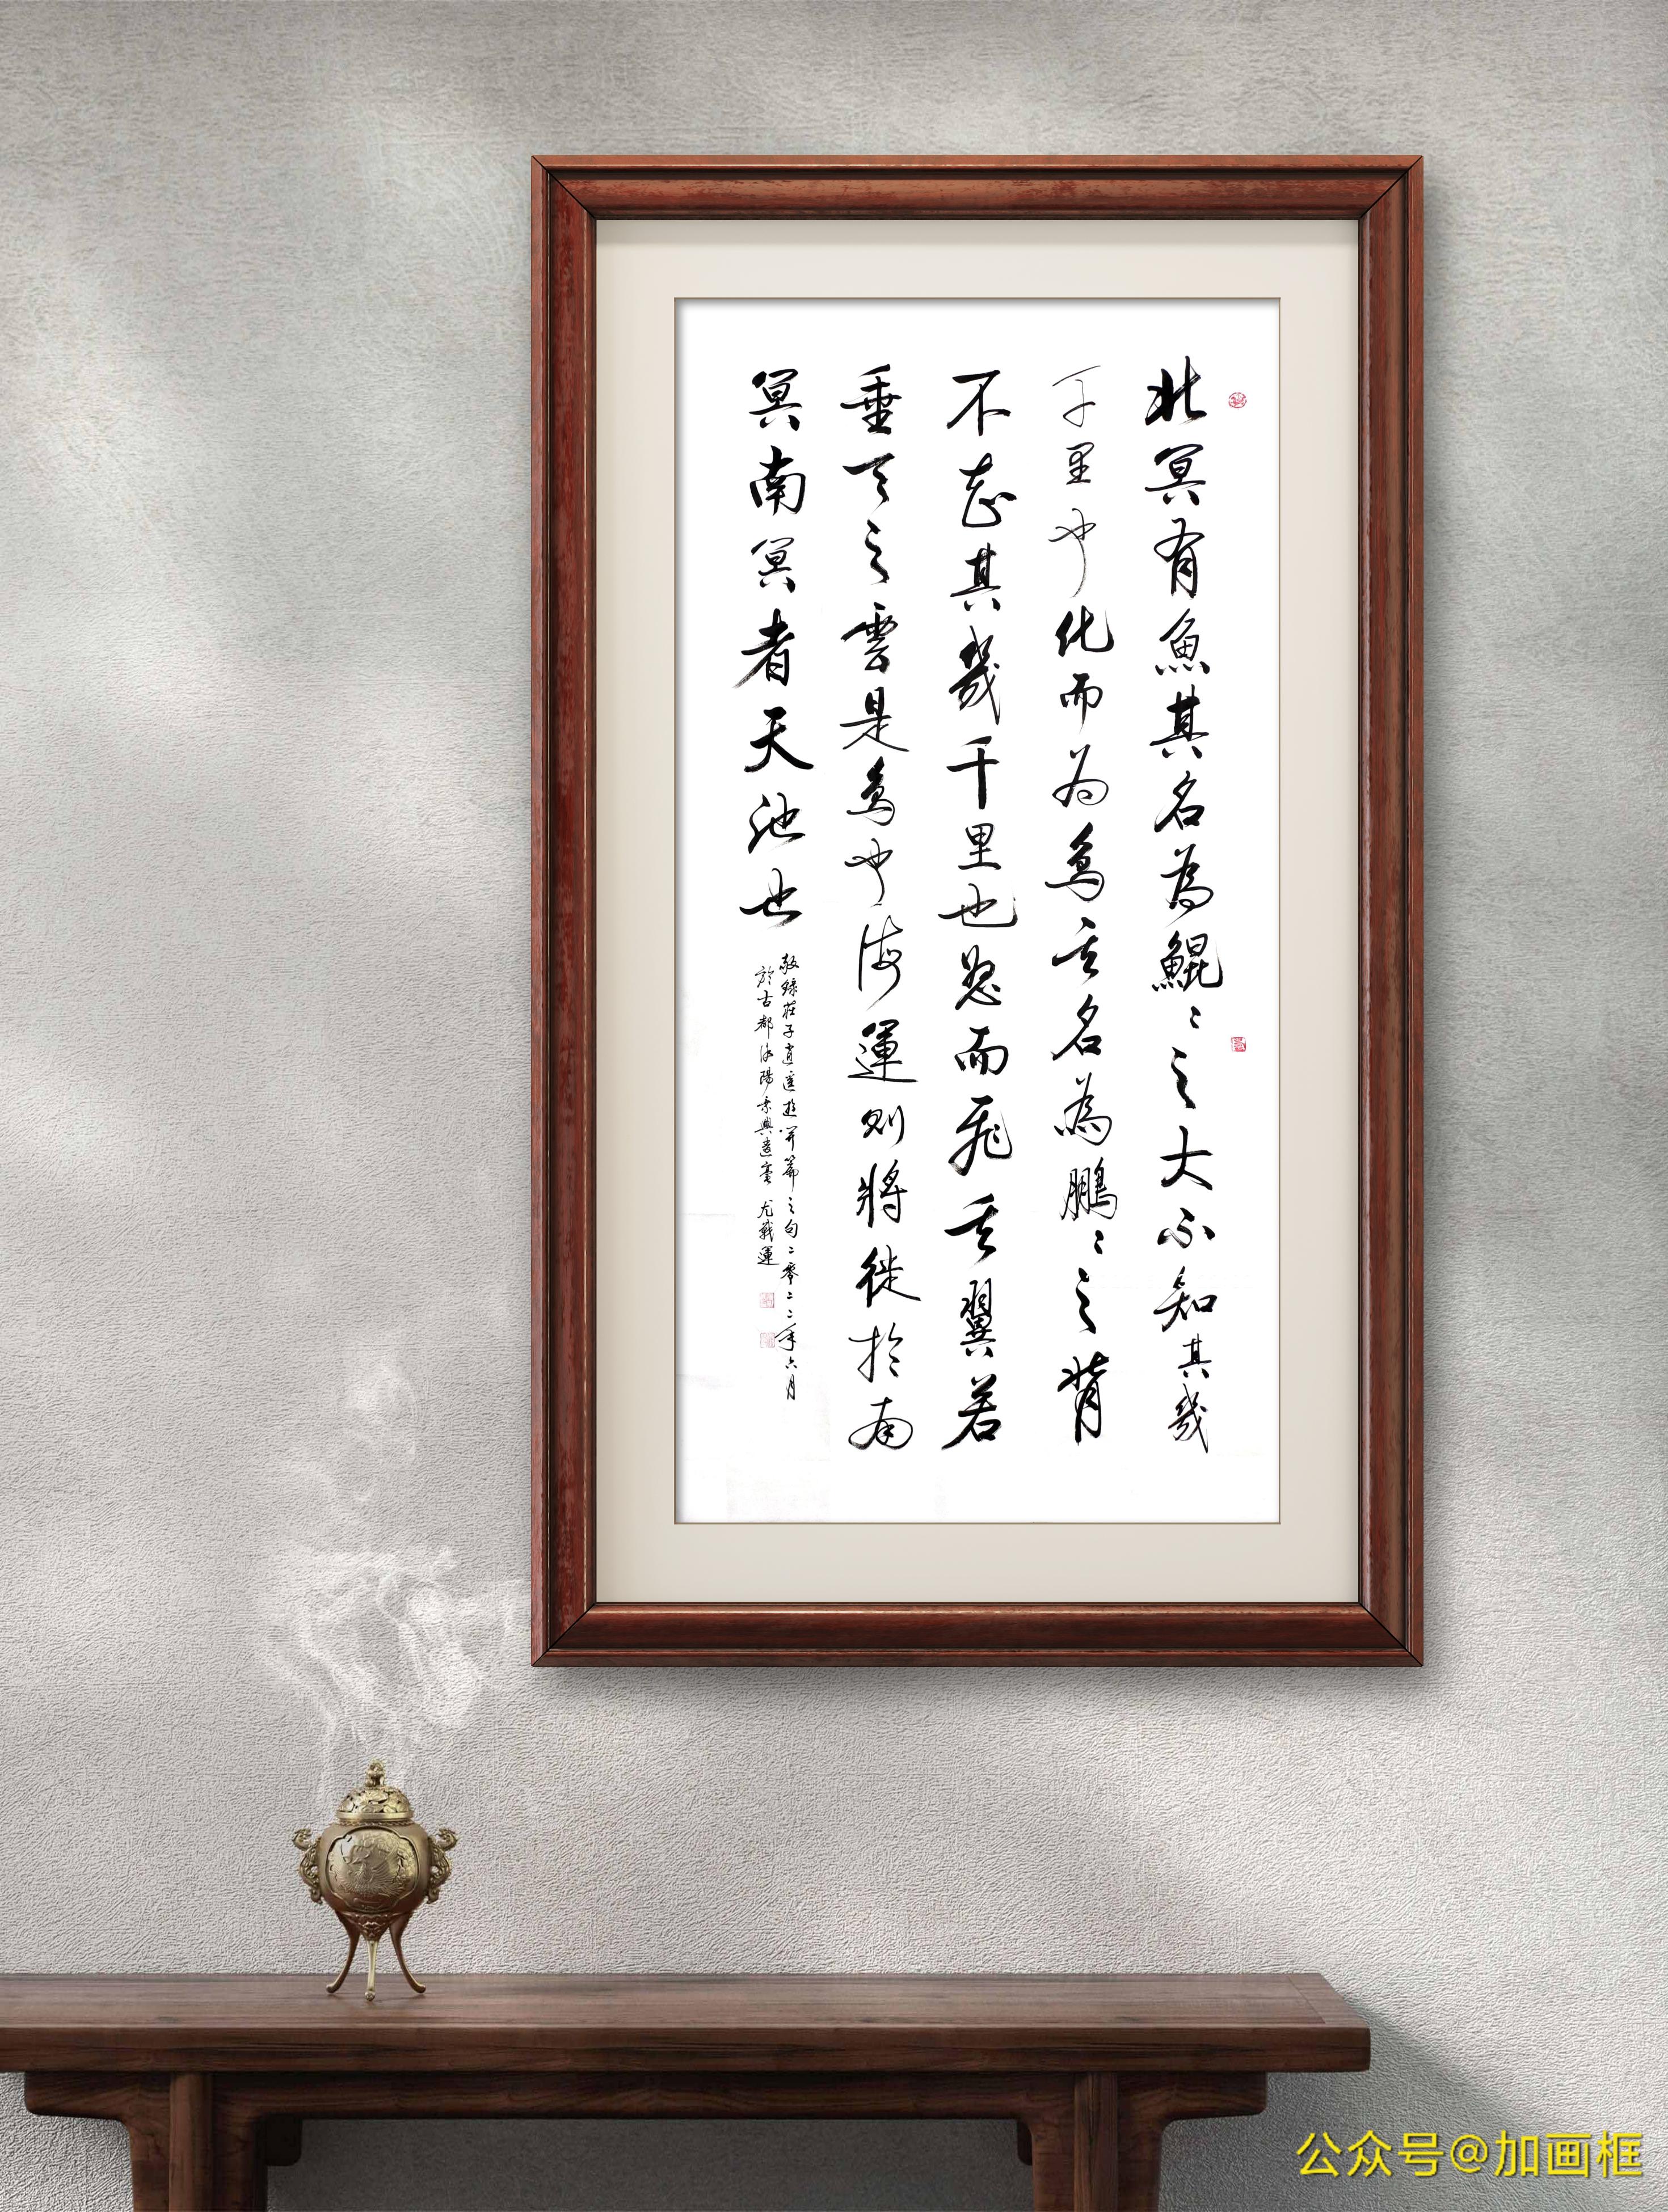 北冥有魚其名為鯤〻之大不知其幾
千里也化而为鳥其名為鵬〻之背
不知其幾千里也怒而飛其翼若
垂天之雲是鳥也海運則將徙於南
冥南冥者天池也
敬錄莊子逍遥遊開篇之句二零二二年六月
於古都洛陽乘興遣毫 尤戟運
公众号@加画框